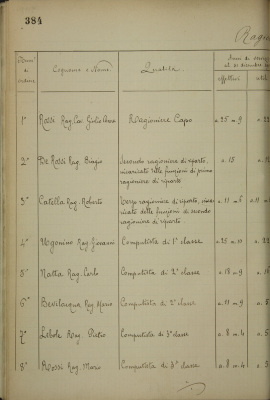 384
Ragio
Cognome e Nome
Qualità
di ordine
effettivi
util
1° Rossi Rag. Cav. Giulio Cesare Ragioniere Capo a. 25 m. 9 a. 22
2° De Rossi Rag. Biagio Secondo ragioniere di riparto, a. 15
incaricato delle funzioni di primo
ragioniere di riparto
3° Catella Rag. Roberto Terzo ragioniere di riparto, inca- a. 11 m. 5 a. 11
ricato delle funzioni di secondo
ragioniere di riparto
4° Ugonino Rag. Giovanni Computista di 1ª classe a. 25 m. 11 a. 22
5° Natta Rag. Carlo Computista di 2ª classe a. 18 m. 9
6° Bevilacqua Rag. Mario Computista di 2ª classe a. 11 m. 9 a. 8
7° Rag. Pietro Computista di 3ª classe a. 8 m. 4 a. 5
8° Rossi Rag. Mario Computista di 3ª classe a. 8 m. 4 a. 3